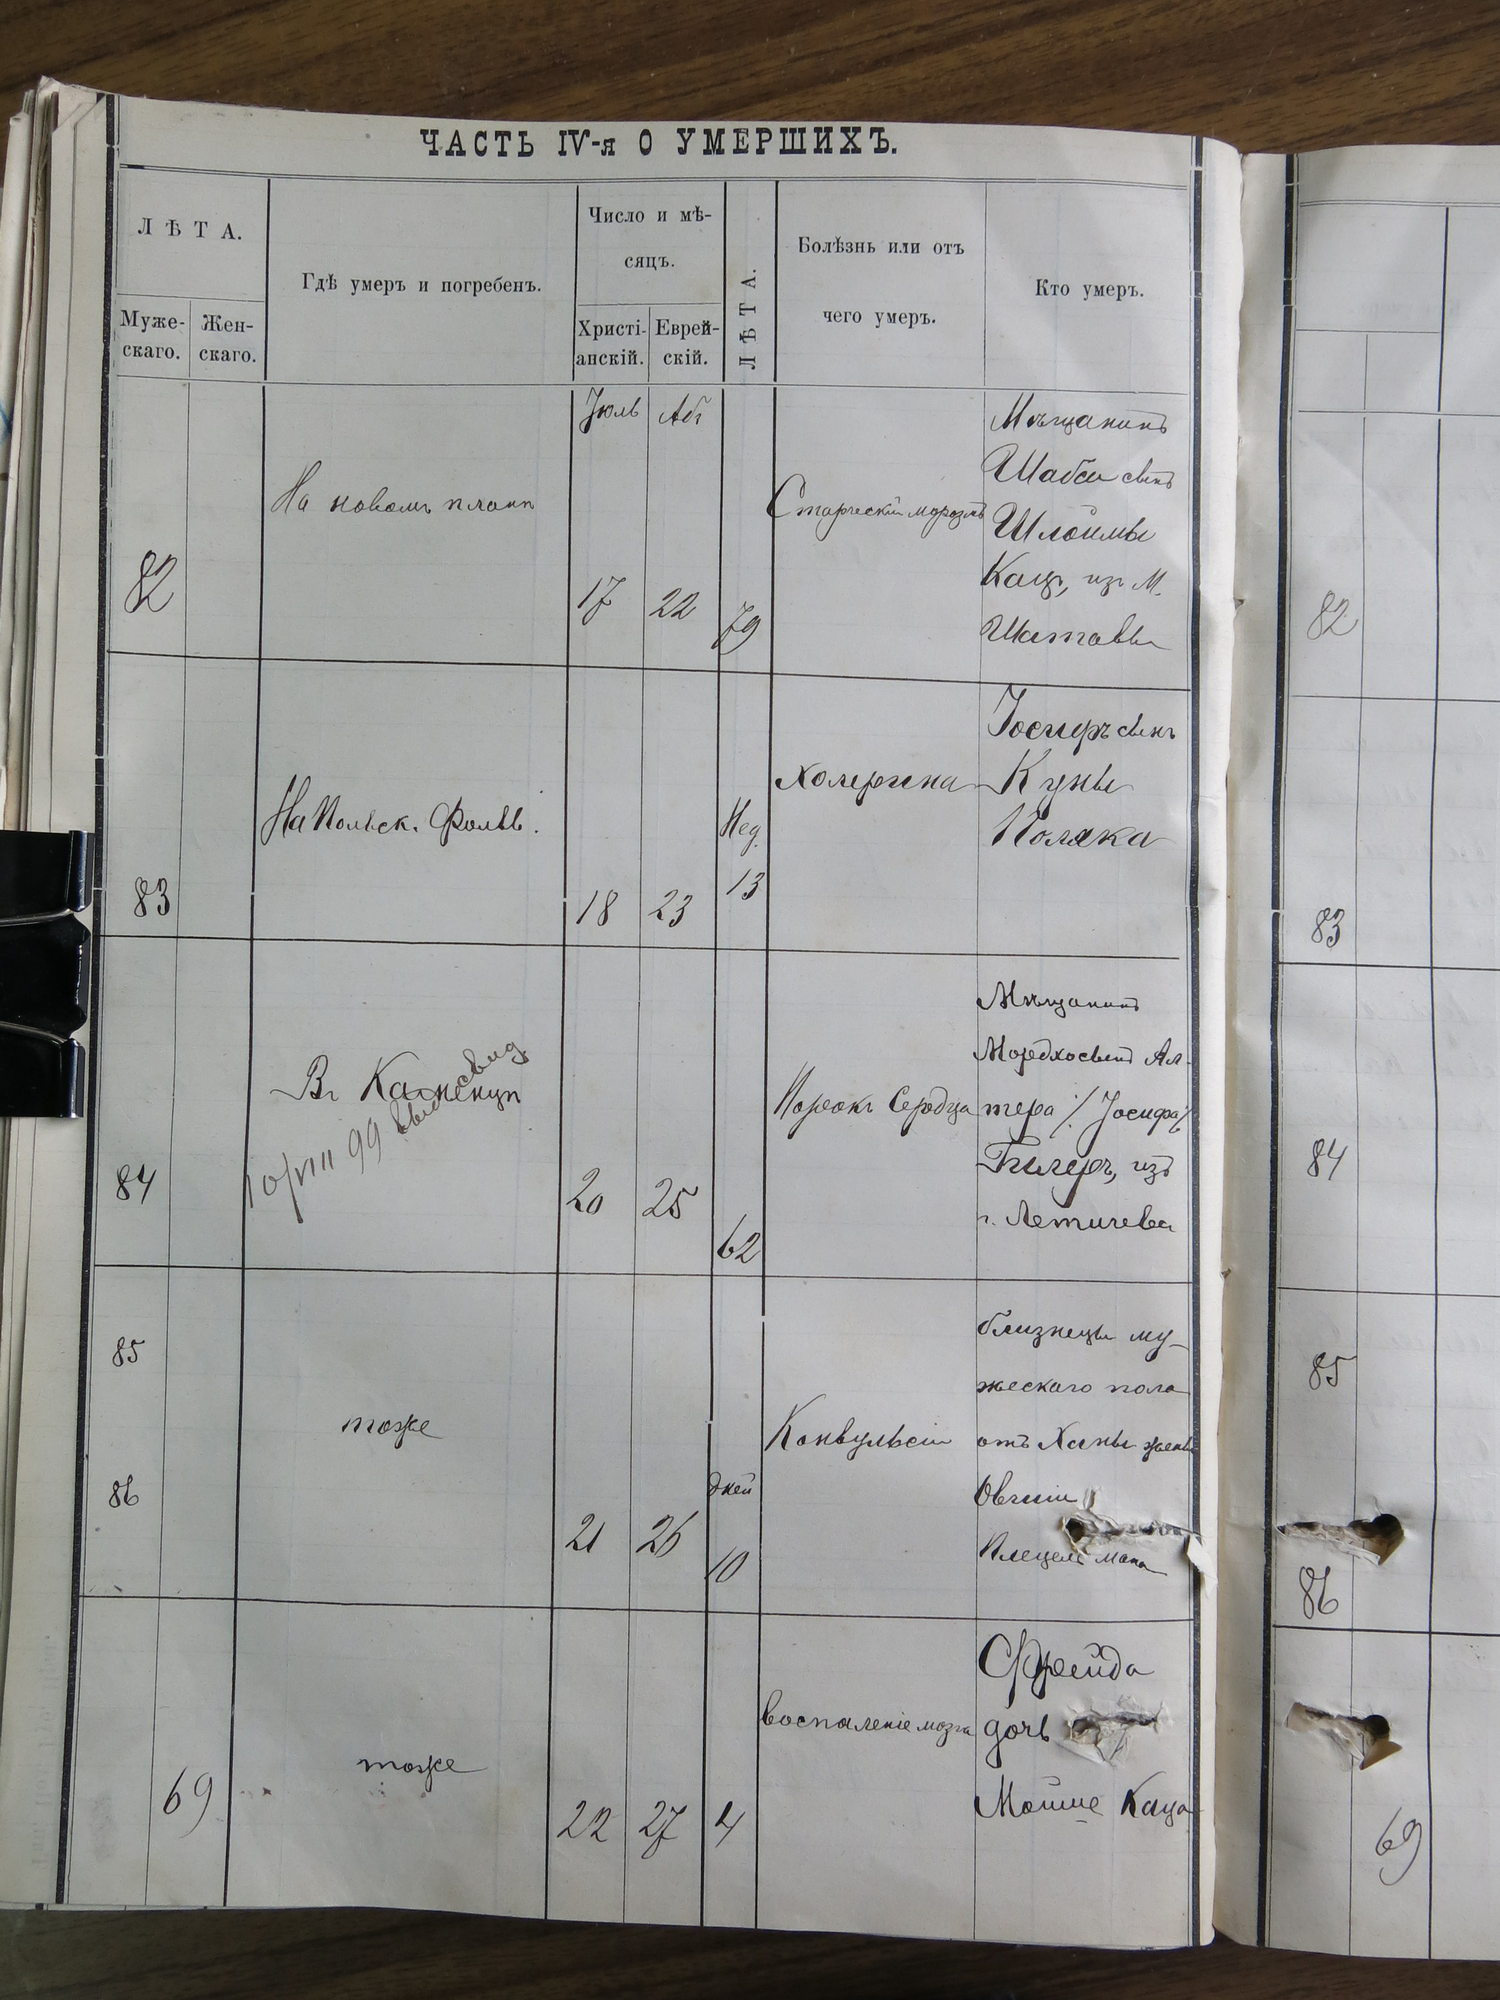 ЧАСТЬ IV-я О УМЕРШИХЪ.
ЛѢТА.
Муже-
скаго.
Жен-
скаго.
Гдѣ умеръ и погребенъ.
Число и мѣ-
сяцъ.
Христі-
анскій.
Еврей-
скій.
ЛѢТА.
Болѣзнь или отъ
чего умеръ.
Кто умеръ.
82
На новомъ планѣ
Іюль
17
Аб
22
79
Старческій маразмъ
Мѣщанинъ
Шабси сынъ
Шлоймы
Кацъ, изъ м.
Шатавы
82
83
На Польск. Фольв.
18
23
Нед.
13
Холерина
Іосифъ сынъ
Куны
Поляка
83
84
Въ Каменцѣ
10/VIII 99 свид
20
25
62
Порокъ Сердца
Мѣщанинъ
Мордко сынъ Ал-
тера /Іосифа/
изъ
г. Летичева
84
85
86
тоже
21
26
дней
10
Конвульсіи
близнецы му-
жескаго пола
отъ Ханы жены
Овшіи
85
86
69
тоже
22
27
4
воспаленіе мозга
Фрейда
дочь
Мойше Каца
69